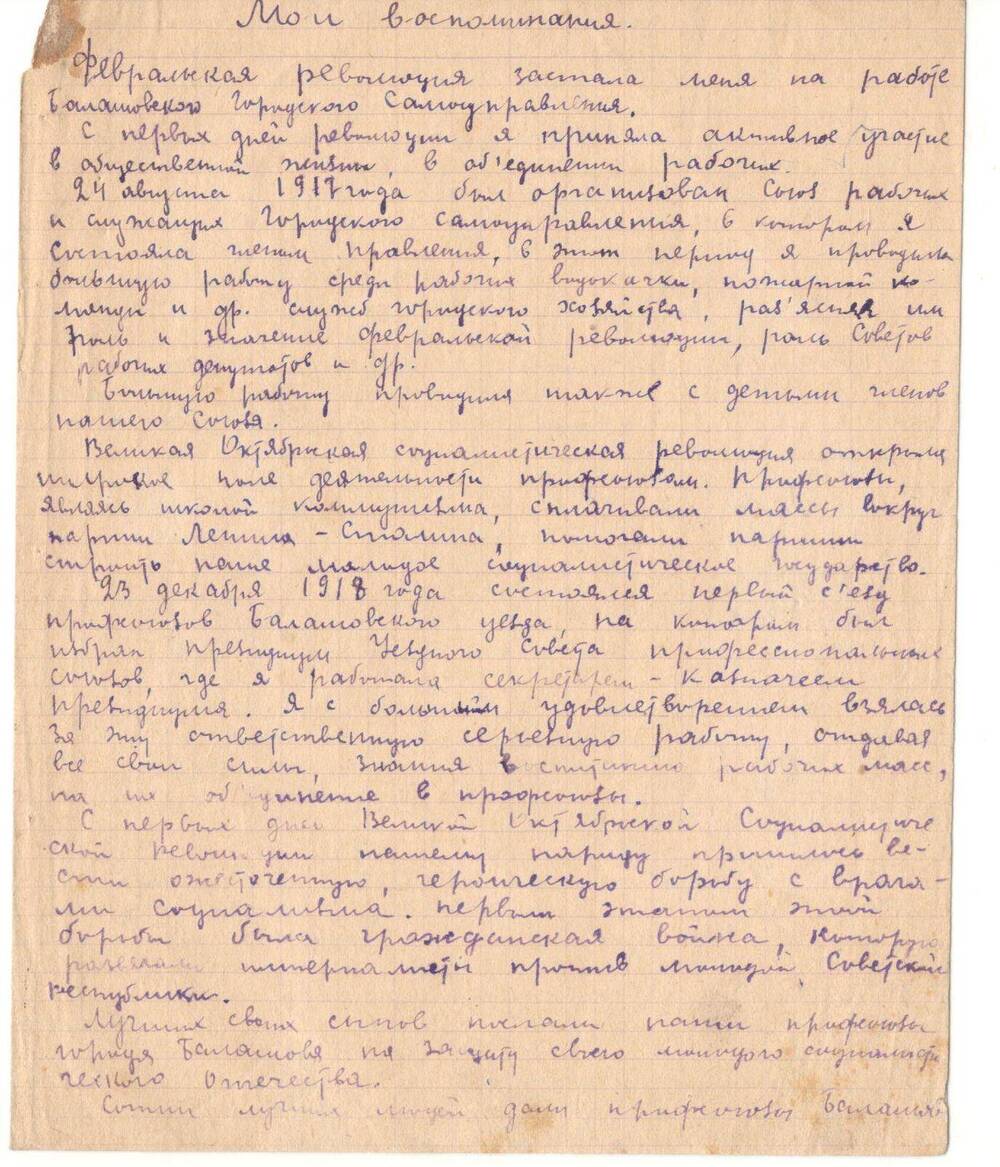 Мои воспоминания.
Февральская революция застала меня на работе
Балашовского Городского Самоуправления.
С первых дней революции я приняла активное участие
в общественной жизни, в об'единении рабочих.
24 августа 1917 года был организован Союз рабочих
и служащих Городского самоуправления, в котором я
состояла членом правления, в этот период я проводила
большую работу среди рабочих водокачки, пожарной ко-
манды и др. служб городского хозяйства, раз'ясняя им
роль и значение февральской революции, роль Советов
рабочих депутатов и др.
Большую работу проводила также с детьми членов
нашего Союза.
Великая Октябрьская социалистическая революция открыла
широкое поле деятельности профсоюзам. Профсоюзы,
являясь школой коммунизма, сплачивали массы вокруг
партии Ленина - Сталина, помогали партии
строить наше молодое социалистическое государство.
23 декабря 1918 года состоялся первый с'езд
профсоюзов Балашовского уезда, на котором был
избран президиум Уездного Совета профессиональных
союзов, где я работала секретарем - казначеем
президиума. Я с большим удовлетворением взялась
за эту ответственную серьезную работу, отдавая
все свои силы, знания воспитанию рабочих масс,
на их об'единение в профсоюзы.
С первых дней Великой Октябрьской Социалистиче
ской революции нашему народу пришлось ве-
сти ожесточенную, героическую борьбу с врага-
ми социализма. Первым этапом этой
борьбы была гражданская война, которую
развязали империалисты против молодой Советской
республики.
Лучших своих сынов послали наши профсоюзы
города Балашова на защиту своего молодого социалисти
ческого Отечества.
Сотни лучших людей дали профсоюзы Балашова